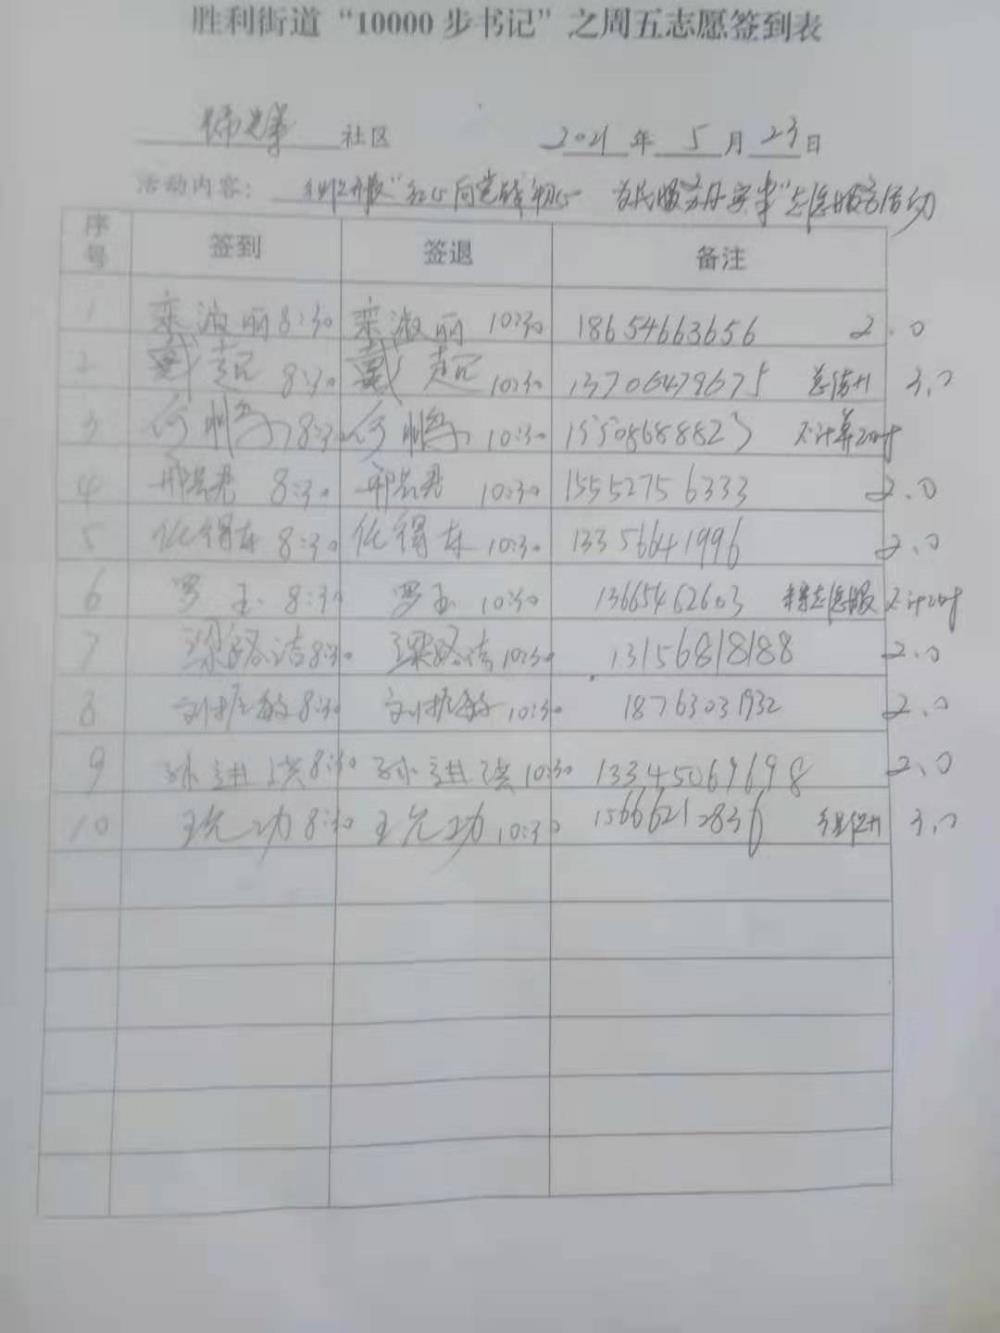 胜利街道“10000步书记”之周五志愿签到表
社区 2021年5月23日
活动内容： “红心向党践初心 为民服务办实事”志愿服务活动
序号 签到 签退 备注
1 栾淑丽 8:30 栾淑丽 10:30 18654663656 2.0
2 戴超 8:30 戴超 10:30 13706479675 3.0
3 何 8:30 何 10:30 15508688823 不计算时
4 邢 君 8:30 邢 君 10:30 15552756333 2.0
5 得 8:30 得 10:30 13356641996 2.0
6 罗玉 8:30 罗玉 10:30 13665462603 志愿服 不计时
7 梁路洁 8:30 梁路洁 10:30 13156818188 2.0
8 刘 敏 8:30 刘 敏 10:30 18763031932 2.0
9 孙进 8:30 孙进 10:30 13345069698 2.0
10 王允功 8:30 王允功 10:30 15666212836 3.0